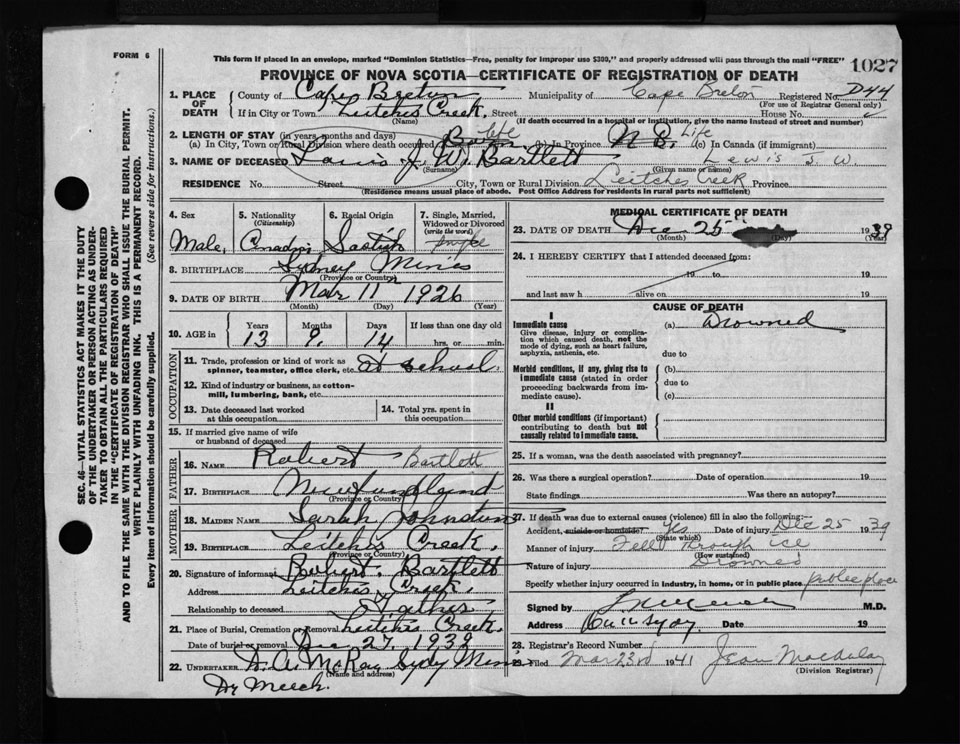 FORM 6
This form if placed in an envelope, marked "Dominion Statistics—Free, penalty for improper use $300," and properly addressed will pass through the mail "FREE"
1027
PROVINCE OF NOVA SCOTIA—CERTIFICATE OF REGISTRATION OF DEATH
1. PLACE OF DEATH County of Cape Breton Municipality of Cape Breton Registered No. D44
(For use of Registrar General only)
If in City or Town Leitches Creek, Street House No.
(Name) (If death occurred in a hospital or institution, give the name instead of street and number)
2. LENGTH OF STAY (in years, months and days)
(a) In City, Town or Rural Division where death occurred life (b) In Province N.B. Life (c) In Canada (if immigrant)
3. NAME OF DECEASED Louis J. W. Bartlett Lewis J. W.
(Surname) (Given name or names)
RESIDENCE No. Street City, Town or Rural Division Leitches Creek Province
(Residence means usual place of abode. Post Office Address for residents in rural parts not sufficient)
4. Sex Male
5. Nationality (Citizenship)
6. Racial Origin Scotish
7. Single, Married, Widowed or Divorced (write the word) single
8. BIRTHPLACE Sidney Mines
(Province or Country)
9. DATE OF BIRTH Mar 11 1926
(Month) (Day) (Year)
10. AGE in Years 13 Months 9 Days 14 If less than one day old hrs. or min.
OCCUPATION
11. Trade, profession or kind of work as spinner, teamster, office clerk, etc. at school.
12. Kind of industry or business, as cotton-mill, lumbering, bank, etc.
13. Date deceased last worked at this occupation
14. Total yrs. spent in this occupation
15. If married give name of wife or husband of deceased
FATHER
16. NAME Robert Bartlett
17. BIRTHPLACE Newfundland
(Province or Country)
MOTHER
18. MAIDEN NAME Sarah Johnston
19. BIRTHPLACE Leitches Creek,
(Province or Country)
20. Signature of informant Robert. Bartlett
Address Leitches Creek.
Relationship to deceased Father
21. Place of Burial, Cremation or Removal Leitches Creek.
Date of burial or removal Dec 27, 1939
22. UNDERTAKER D. A. McRay Sydy Mines
(Name and address)
Dr Meech.
MEDICAL CERTIFICATE OF DEATH
23. DATE OF DEATH Dec 25 1939
(Month) (Day) (Year)
24. I HEREBY CERTIFY that I attended deceased from:
19 to 19
and last saw h alive on 19
CAUSE OF DEATH
I
Immediate cause (a) Drowned
Give disease, injury or complication which caused death, not the mode of dying, such as heart failure, asphyxia, asthenia, etc.
due to
Morbid conditions, if any, giving rise to immediate cause (stated in order proceeding backwards from immediate cause).
(b)
due to
(c)
II
Other morbid conditions (if important) contributing to death but not causally related to immediate cause.
25. If a woman, was the death associated with pregnancy?
26. Was there a surgical operation? Date of operation 19
State findings Was there an autopsy?
27. If death was due to external causes (violence) fill in also the following:—
Accident, suicide or homicide? Yes Date of injury Dec 25 1939
(State which)
Manner of injury Fell through ice
(How sustained)
Nature of injury Drowned
Specify whether injury occurred in industry, in home, or in public place public place
Signed by M.D.
Address Date 19
28. Registrar's Record Number
29. Filed Mar 23rd 1941
(Division Registrar)
SEC. 46—VITAL STATISTICS ACT MAKES IT THE DUTY
OF THE UNDERTAKER OR PERSON ACTING AS UNDER-
TAKER TO OBTAIN ALL THE PARTICULARS REQUIRED
IN THE "CERTIFICATE OF REGISTRATION OF DEATH"
AND TO FILE THE SAME WITH THE DIVISION REGISTRAR WHO SHALL ISSUE THE BURIAL PERMIT.
WRITE PLAINLY WITH UNFADING INK. THIS IS A PERMANENT RECORD.
Every item of information should be carefully supplied. (See reverse side for instructions.)